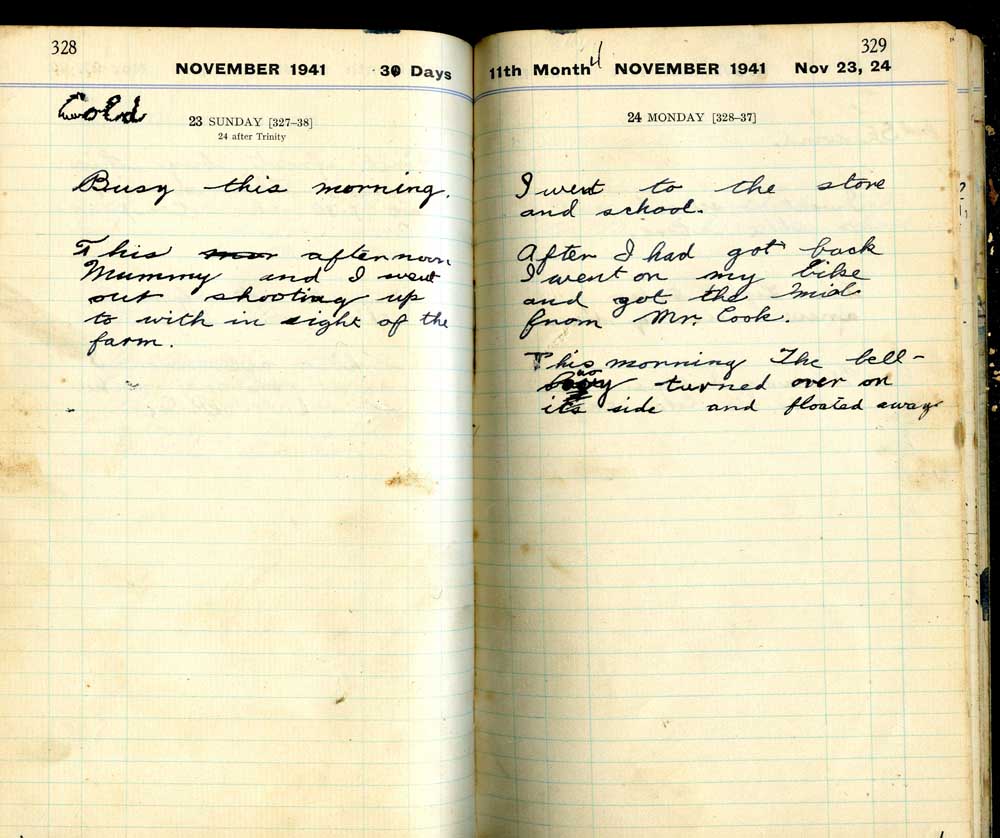 328
NOVEMBER 1941 30 Days
Cold
23 SUNDAY [327–38]
24 after Trinity
Busy this morning.
This mor afternoon
Mummy and I went
out shooting up
to with in sight of the
farm.
329
11th Month 4 NOVEMBER 1941 Nov 23, 24
24 MONDAY [328–37]
I went to the store
and school.
After I had got back
I went on my bike
and got the mid
from Mr. Cook.
This morning The bell-
turned over on
its side and floated away